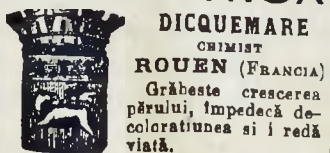 DICQUEMARE
CHIMIST
ROUEN (FRANCIA)
Grăbeste crescerea
părului, împedecă de-
coloratiunea si i redă
viată.